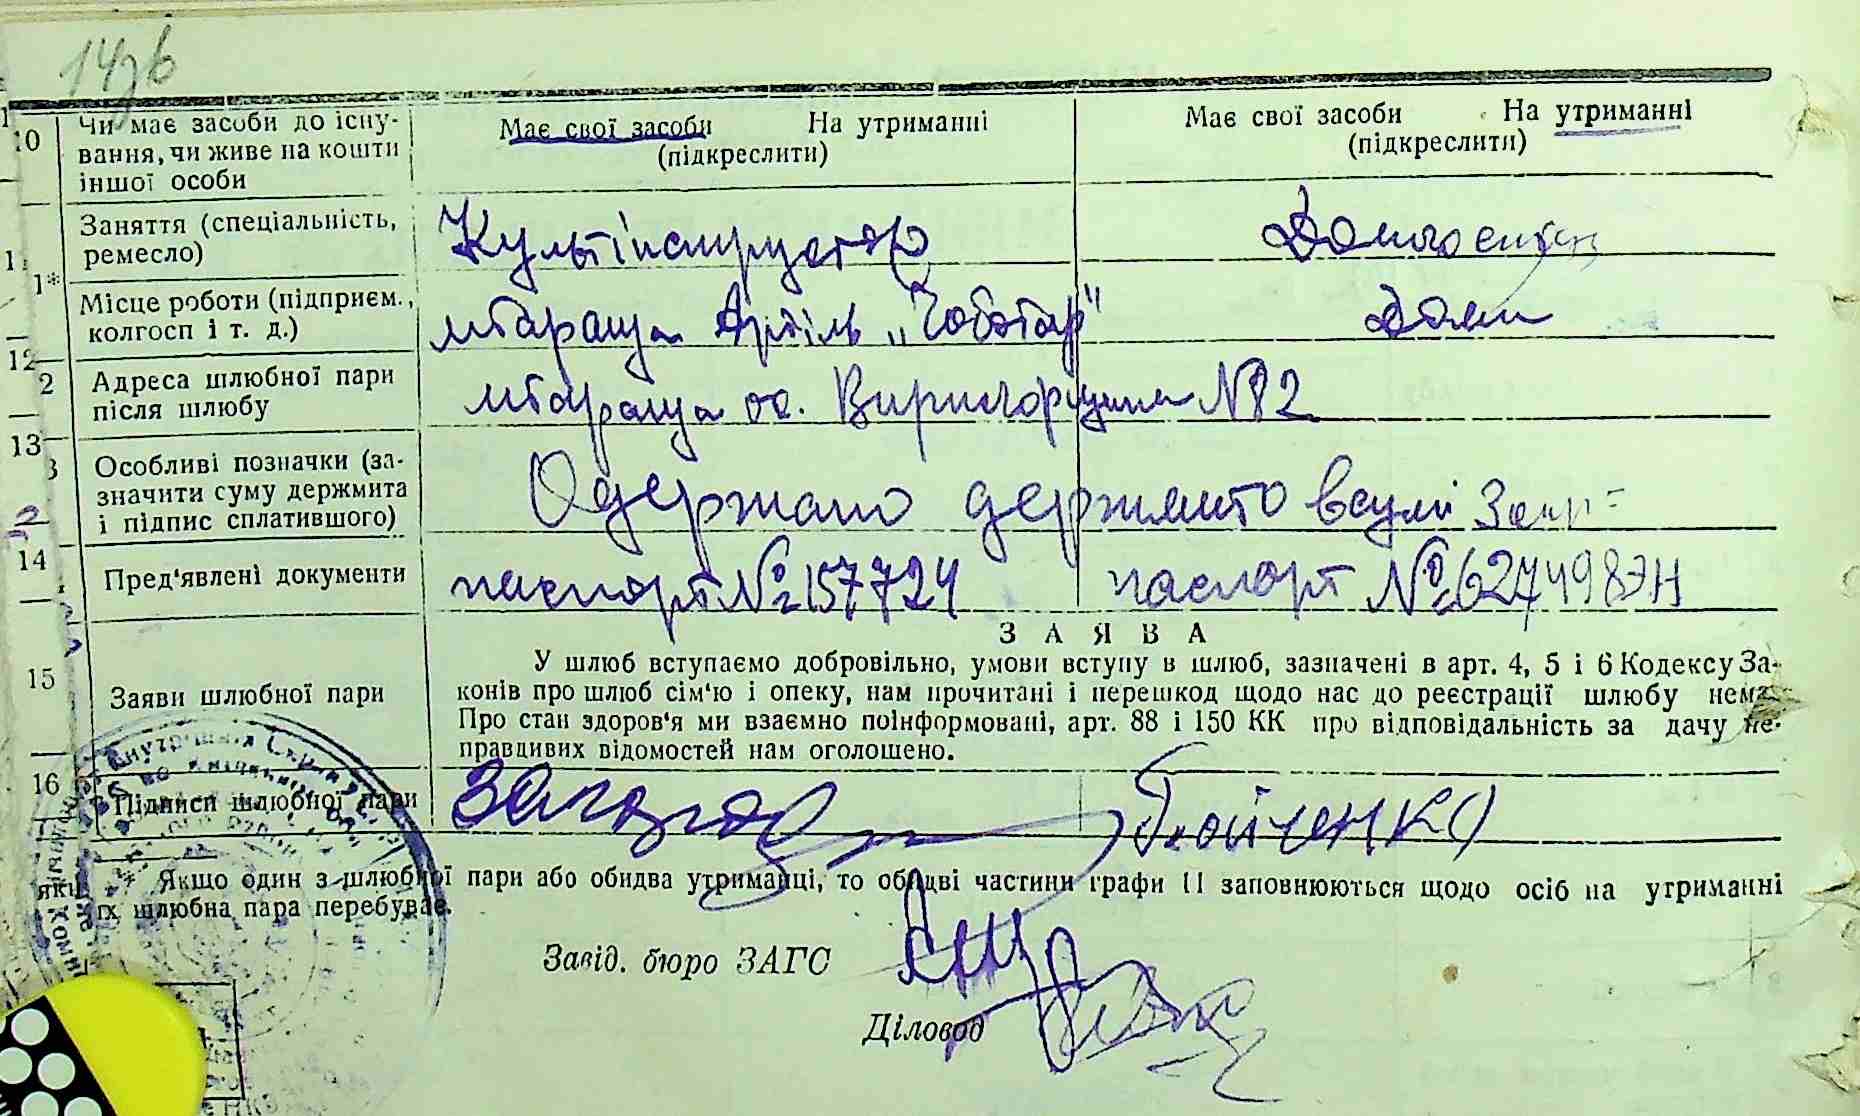 10 Чи має засоби до існу- Має свої засоби На утриманні Має свої засоби На утриманні
вання, чи живе на кошти (підкреслити) (підкреслити)
іншої особи
11 Заняття (спеціальність, Культінструктор
ремесло)
1* Місце роботи (підприєм., мТараща Артіль „Чоботар" Дома
колгосп і т. д.)
12 Адреса шлюбної пари мТараща №82
після шлюбу
13 Особливі позначки (за- Одержано держмито всумі
значити суму держмита
і підпис сплатившого)
14 Пред'явлені документи паспорт №157724 паспорт №627498ЭН
З А Я В А
15 Заяви шлюбної пари У шлюб вступаємо добровільно, умови вступу в шлюб, зазначені в арт. 4, 5 і 6 Кодексу За-
конів про шлюб сім'ю і опеку, нам прочитані і перешкод щодо нас до реєстрації шлюбу нема.
Про стан здоров'я ми взаємно поінформовані, арт. 88 і 150 КК про відповідальність за дачу не-
правдивих відомостей нам оголошено.
16 Підписи шлюбної пари
* Якщо один з шлюбної пари або обидва утриманці, то обидві частини графи 11 заповнюються щодо осіб на утриманні
їх шлюбна пара перебуває.
Завід. бюро ЗАГС
Діловод